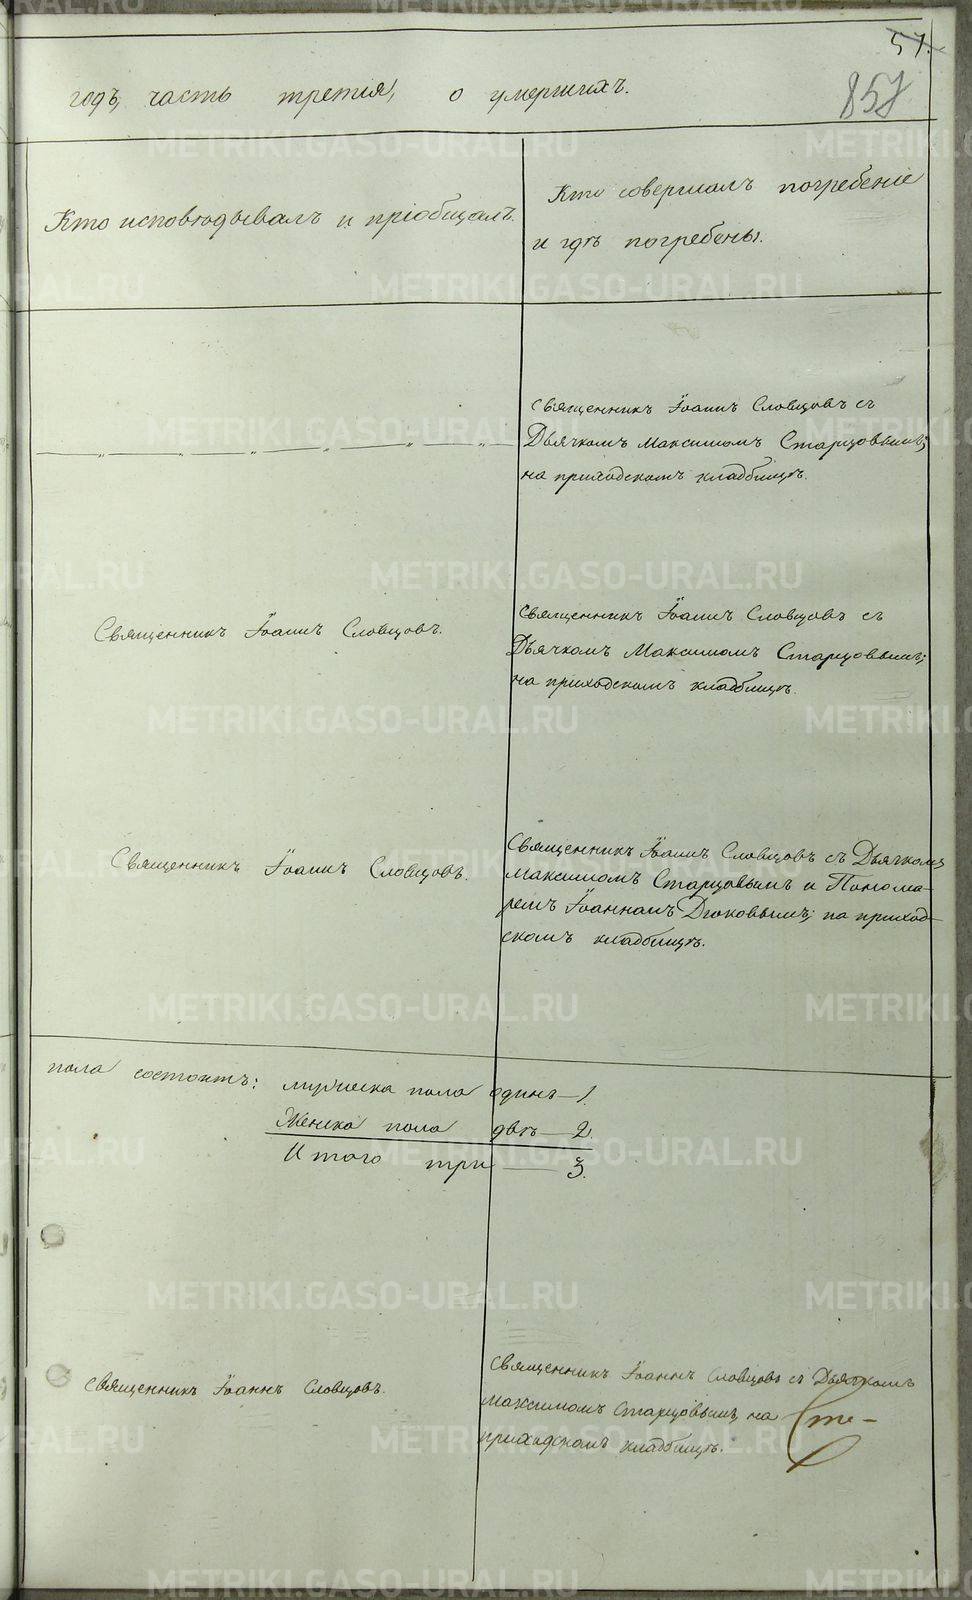 51.
857
годъ, часть третія, о умершихъ.
Кто исповѣдывалъ и пріобщалъ.
Кто совершалъ погребеніе
и гдѣ погребены.
Священникъ Іоаннъ Словцовъ съ
Дьячкомъ Максимомъ Старцовымъ;
на приходскомъ кладбищѣ.
Священникъ Іоаннъ Словцовъ.
Священникъ Іоаннъ Словцовъ съ
Дьячкомъ Максимомъ Старцовымъ;
на приходскомъ кладбищѣ.
Священникъ Іоаннъ Словцовъ.
Священникъ Іоаннъ Словцовъ съ Дьячкомъ
Максимомъ Старцовымъ и Понома-
ремъ Іоанномъ Дюковымъ; на приход-
скомъ кладбищѣ.
пола состоитъ: мужеска пола одинъ — 1.
Женска пола двѣ — 2.
Итого три — 3.
Священникъ Іоаннъ Словцовъ.
Священникъ Іоаннъ Словцовъ съ Дьячкомъ
Максимомъ Старцовымъ, на
приходскомъ кладбищѣ.
Сте-
METRIKI.GASO-URAL.RU